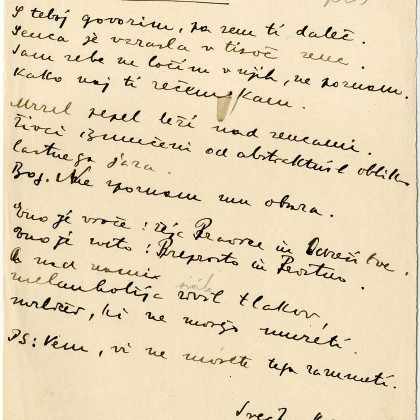 S teboj govorim, pa sem ti daleč.
Senca je vzrasla v tisoč senc.
Sam sebe ne ločim v njih, ne poznam.
Kako naj ti rečem: Kam.
Mrzel pepel leži nad sencami.
Živci izmučeni od abstraktnih oblik
lastnega
Bog. Ne poznam mu obraza.
Eno je vroče: žeja Pravice in
Eno je sveto: Preprosto in
A nad nami
melanholija
ki ne morejo umreti.
PS: Vem, vi ne morete tega razumeti.
Sreč